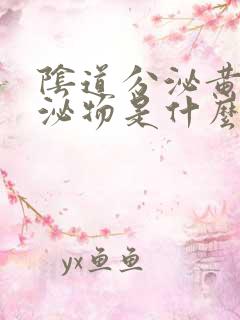 陰道分泌黃
泌物是什麼
yx鱼鱼